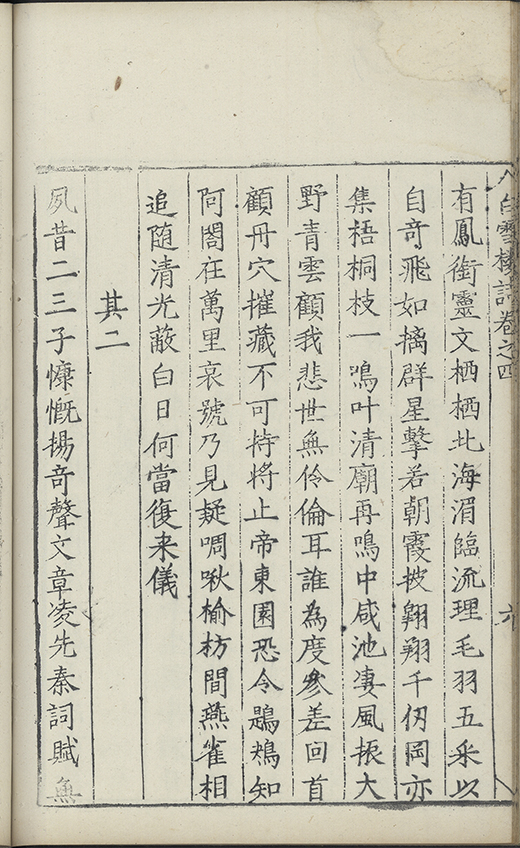 白雲樓詩卷之四 六
有鳳銜靈文栖栖北海湄臨流理毛羽五采以
自奇飛如摛群星擊若朝霞披翱翔千仞岡亦
集梧桐枝一鳴叶清廟再鳴中咸池凄風振大
野青雲顧我悲世無伶倫耳誰為度參差回首
顧丹穴摧藏不可持將止帝東園恐令鶗鴂知
阿閣在萬里哀號乃見疑啁啾榆枋間燕雀相
追随清光蔽白日何當復来儀
其二
夙昔二三子慷慨揚奇聲文章凌先秦詞賦無